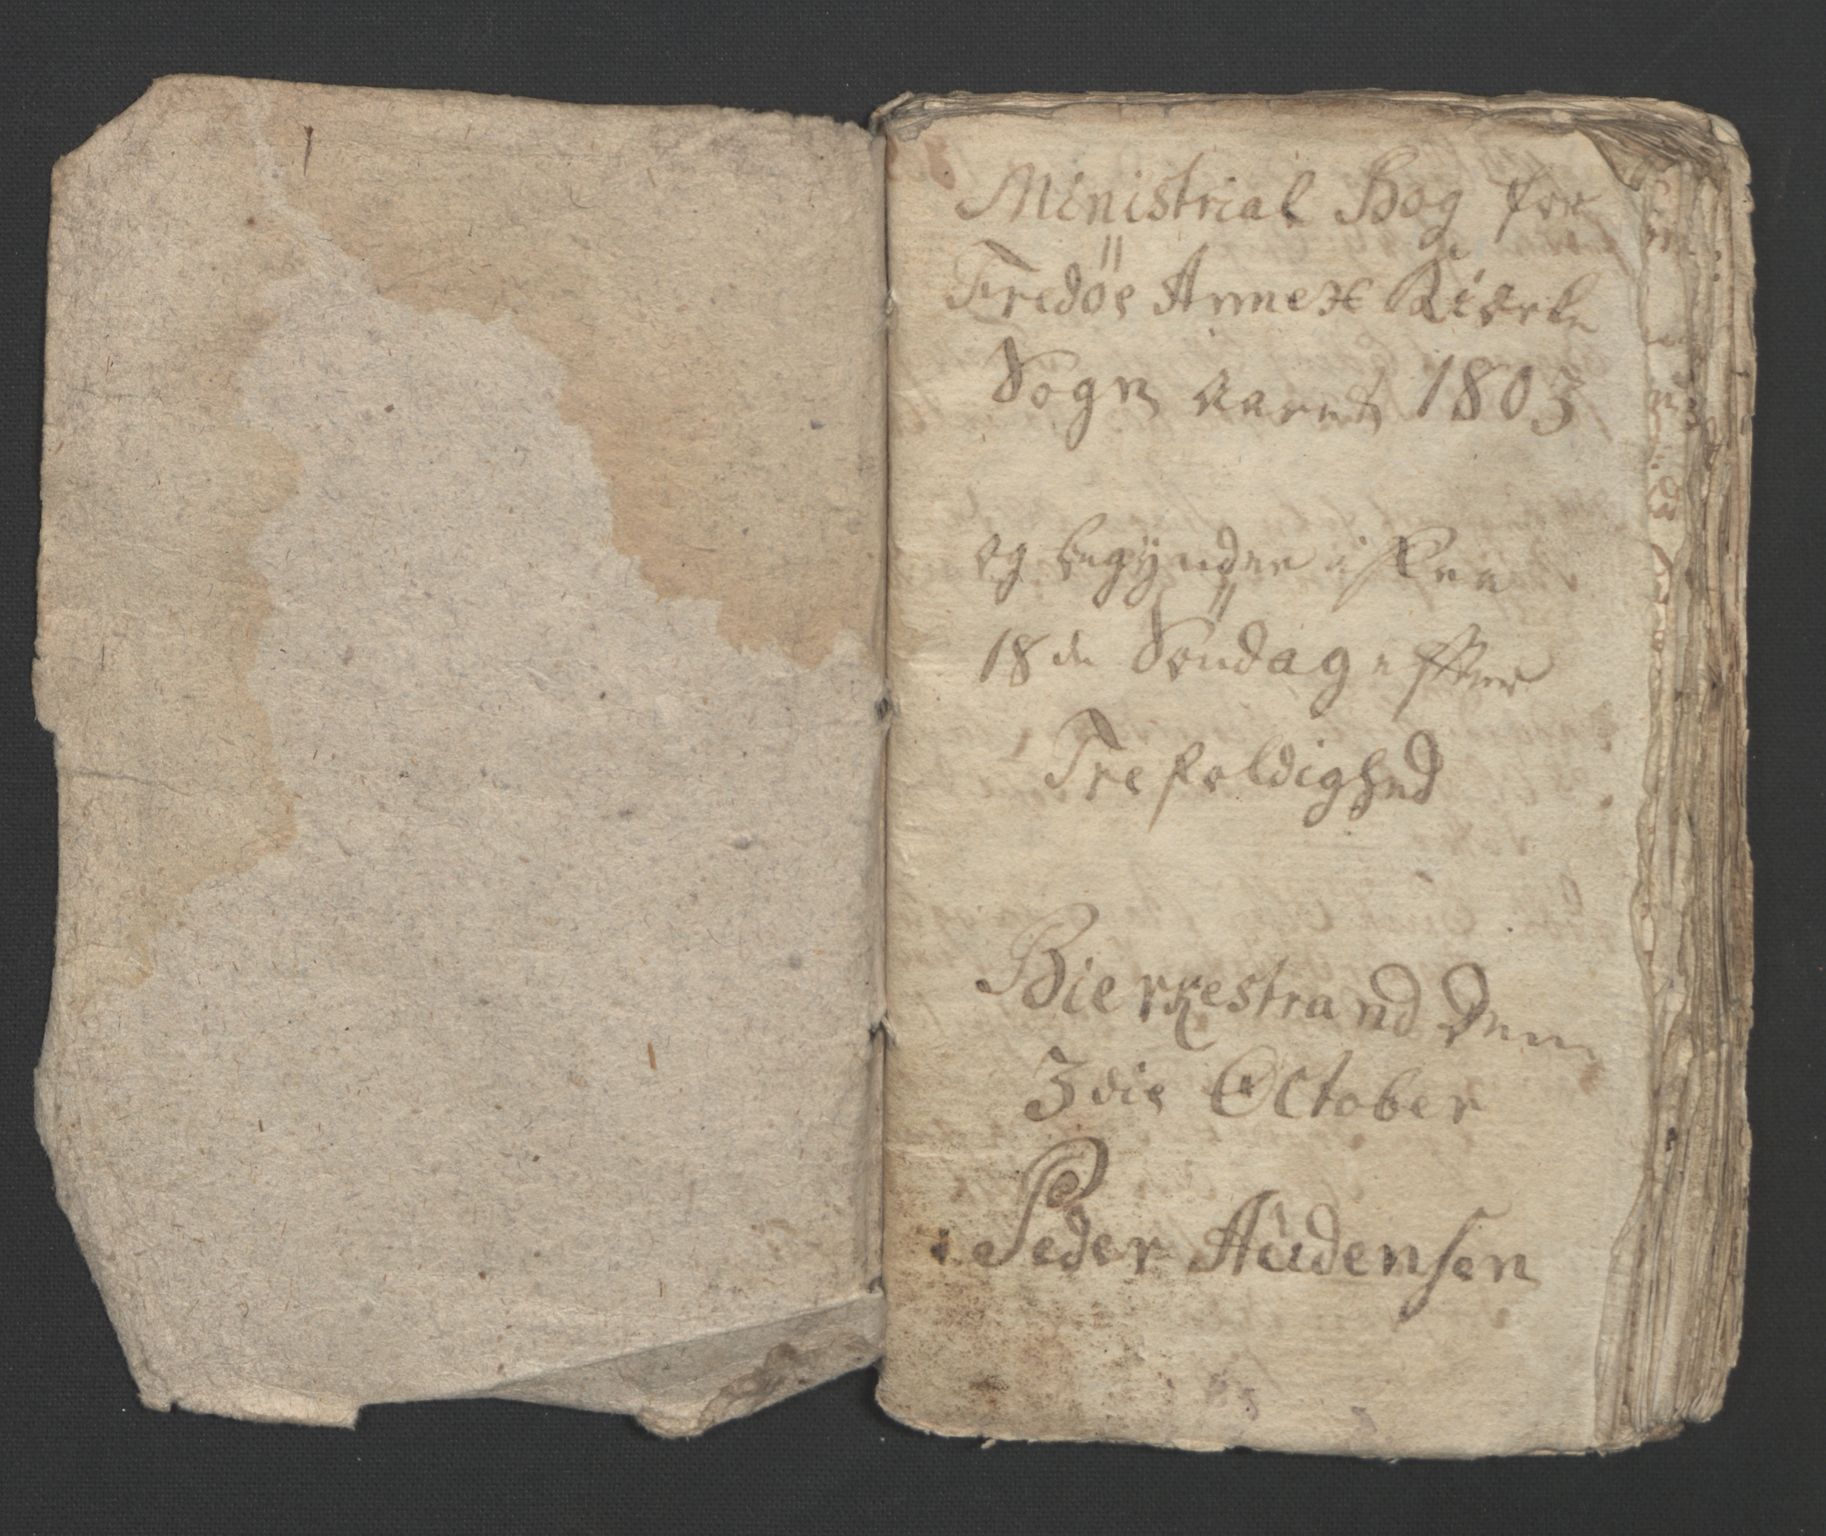 Ministrial Bog for
Fredös Annex Kierke
Sogn aaret 1803
og begÿnder
18de Söndag efter
Trefoldighed
Bierkestrand Den
3die October
Peder Audensen